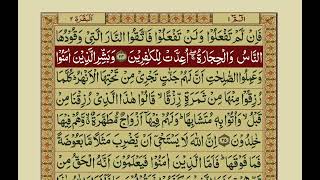 الٓمّٓ ١
اَلْبَقَرَة ٢
فَاِنْ لَّمْ تَفْعَلُوْا وَلَنْ تَفْعَلُوْا فَاتَّقُوا النَّارَ الَّتِيْ وَقُوْدُهَا
النَّاسُ وَالْحِجَارَةُ ۖ اُعِدَّتْ لِلْكٰفِرِيْنَ ﴿۲۴﴾ وَبَشِّرِ الَّذِيْنَ اٰمَنُوْا
وَعَمِلُوا الصّٰلِحٰتِ اَنَّ لَهُمْ جَنّٰتٍ تَجْرِيْ مِنْ تَحْتِهَا الْاَنْهٰرُ ؕ كُلَّمَا
رُزِقُوْا مِنْهَا مِنْ ثَمَرَةٍ رِّزْقًا ۙ قَالُوْا هٰذَا الَّذِيْ رُزِقْنَا مِنْ
قَبْلُ ۙ وَاُتُوْا بِهٖ مُتَشَابِهًا ؕ وَلَهُمْ فِيْهَاۤ اَزْوَاجٌ مُّطَهَّرَةٌ ۙ وَّهُمْ فِيْهَا
خٰلِدُوْنَ ﴿۲۵﴾ اِنَّ اللّٰهَ لَا يَسْتَحْيٖۤ اَنْ يَّضْرِبَ مَثَلًا مَّا بَعُوْضَةً
فَمَا فَوْقَهَا ؕ فَاَمَّا الَّذِيْنَ اٰمَنُوْا فَيَعْلَمُوْنَ اَنَّهُ الْحَقُّ مِنْ